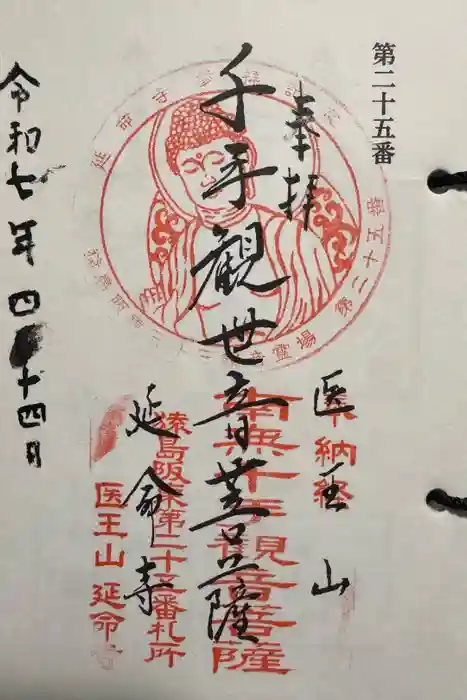 第二十五番
奉拝
医王山
千手観世音菩薩
延命寺
令和七年四月十四日
第二十五番
南無千手観音菩薩
奉納経
猿島阪東第二十五番札所
医王山 延命